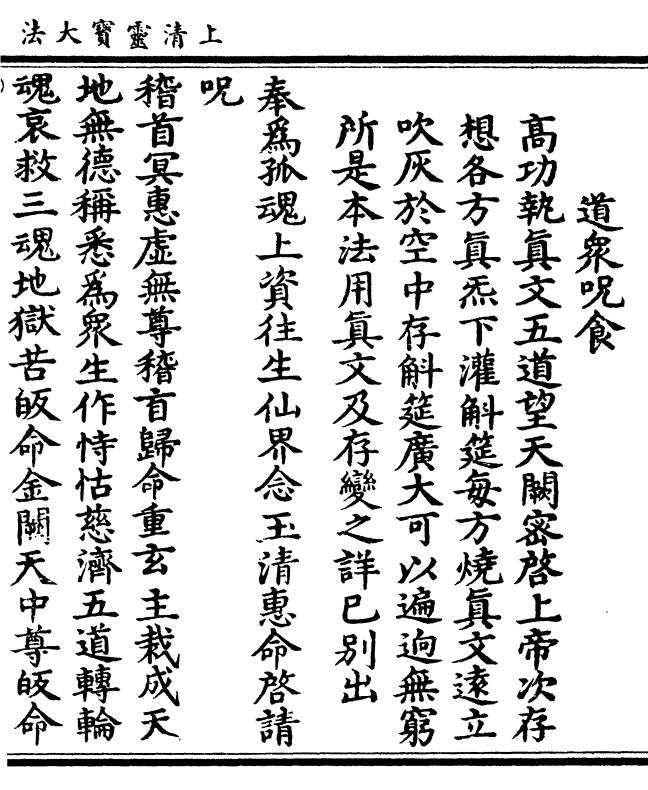 上清靈寶大法
道衆呪食
高功執眞文五道望天闕密啓上帝次存
想各方眞炁下灌斛筵每方燒眞文遶立
吹灰於空中存斛筵廣大可以遍逈無窮
所是本法用眞文及存變之詳已别出
奉爲孤魂上資往生仙界念玉清惠命啓請
呪
稽首冥惠虛無尊稽首歸命重玄主栽成天
地無德稱悉爲衆生作恃怙慈濟五道轉輪
魂哀救三魂地獄苦皈命金闕天中尊皈命